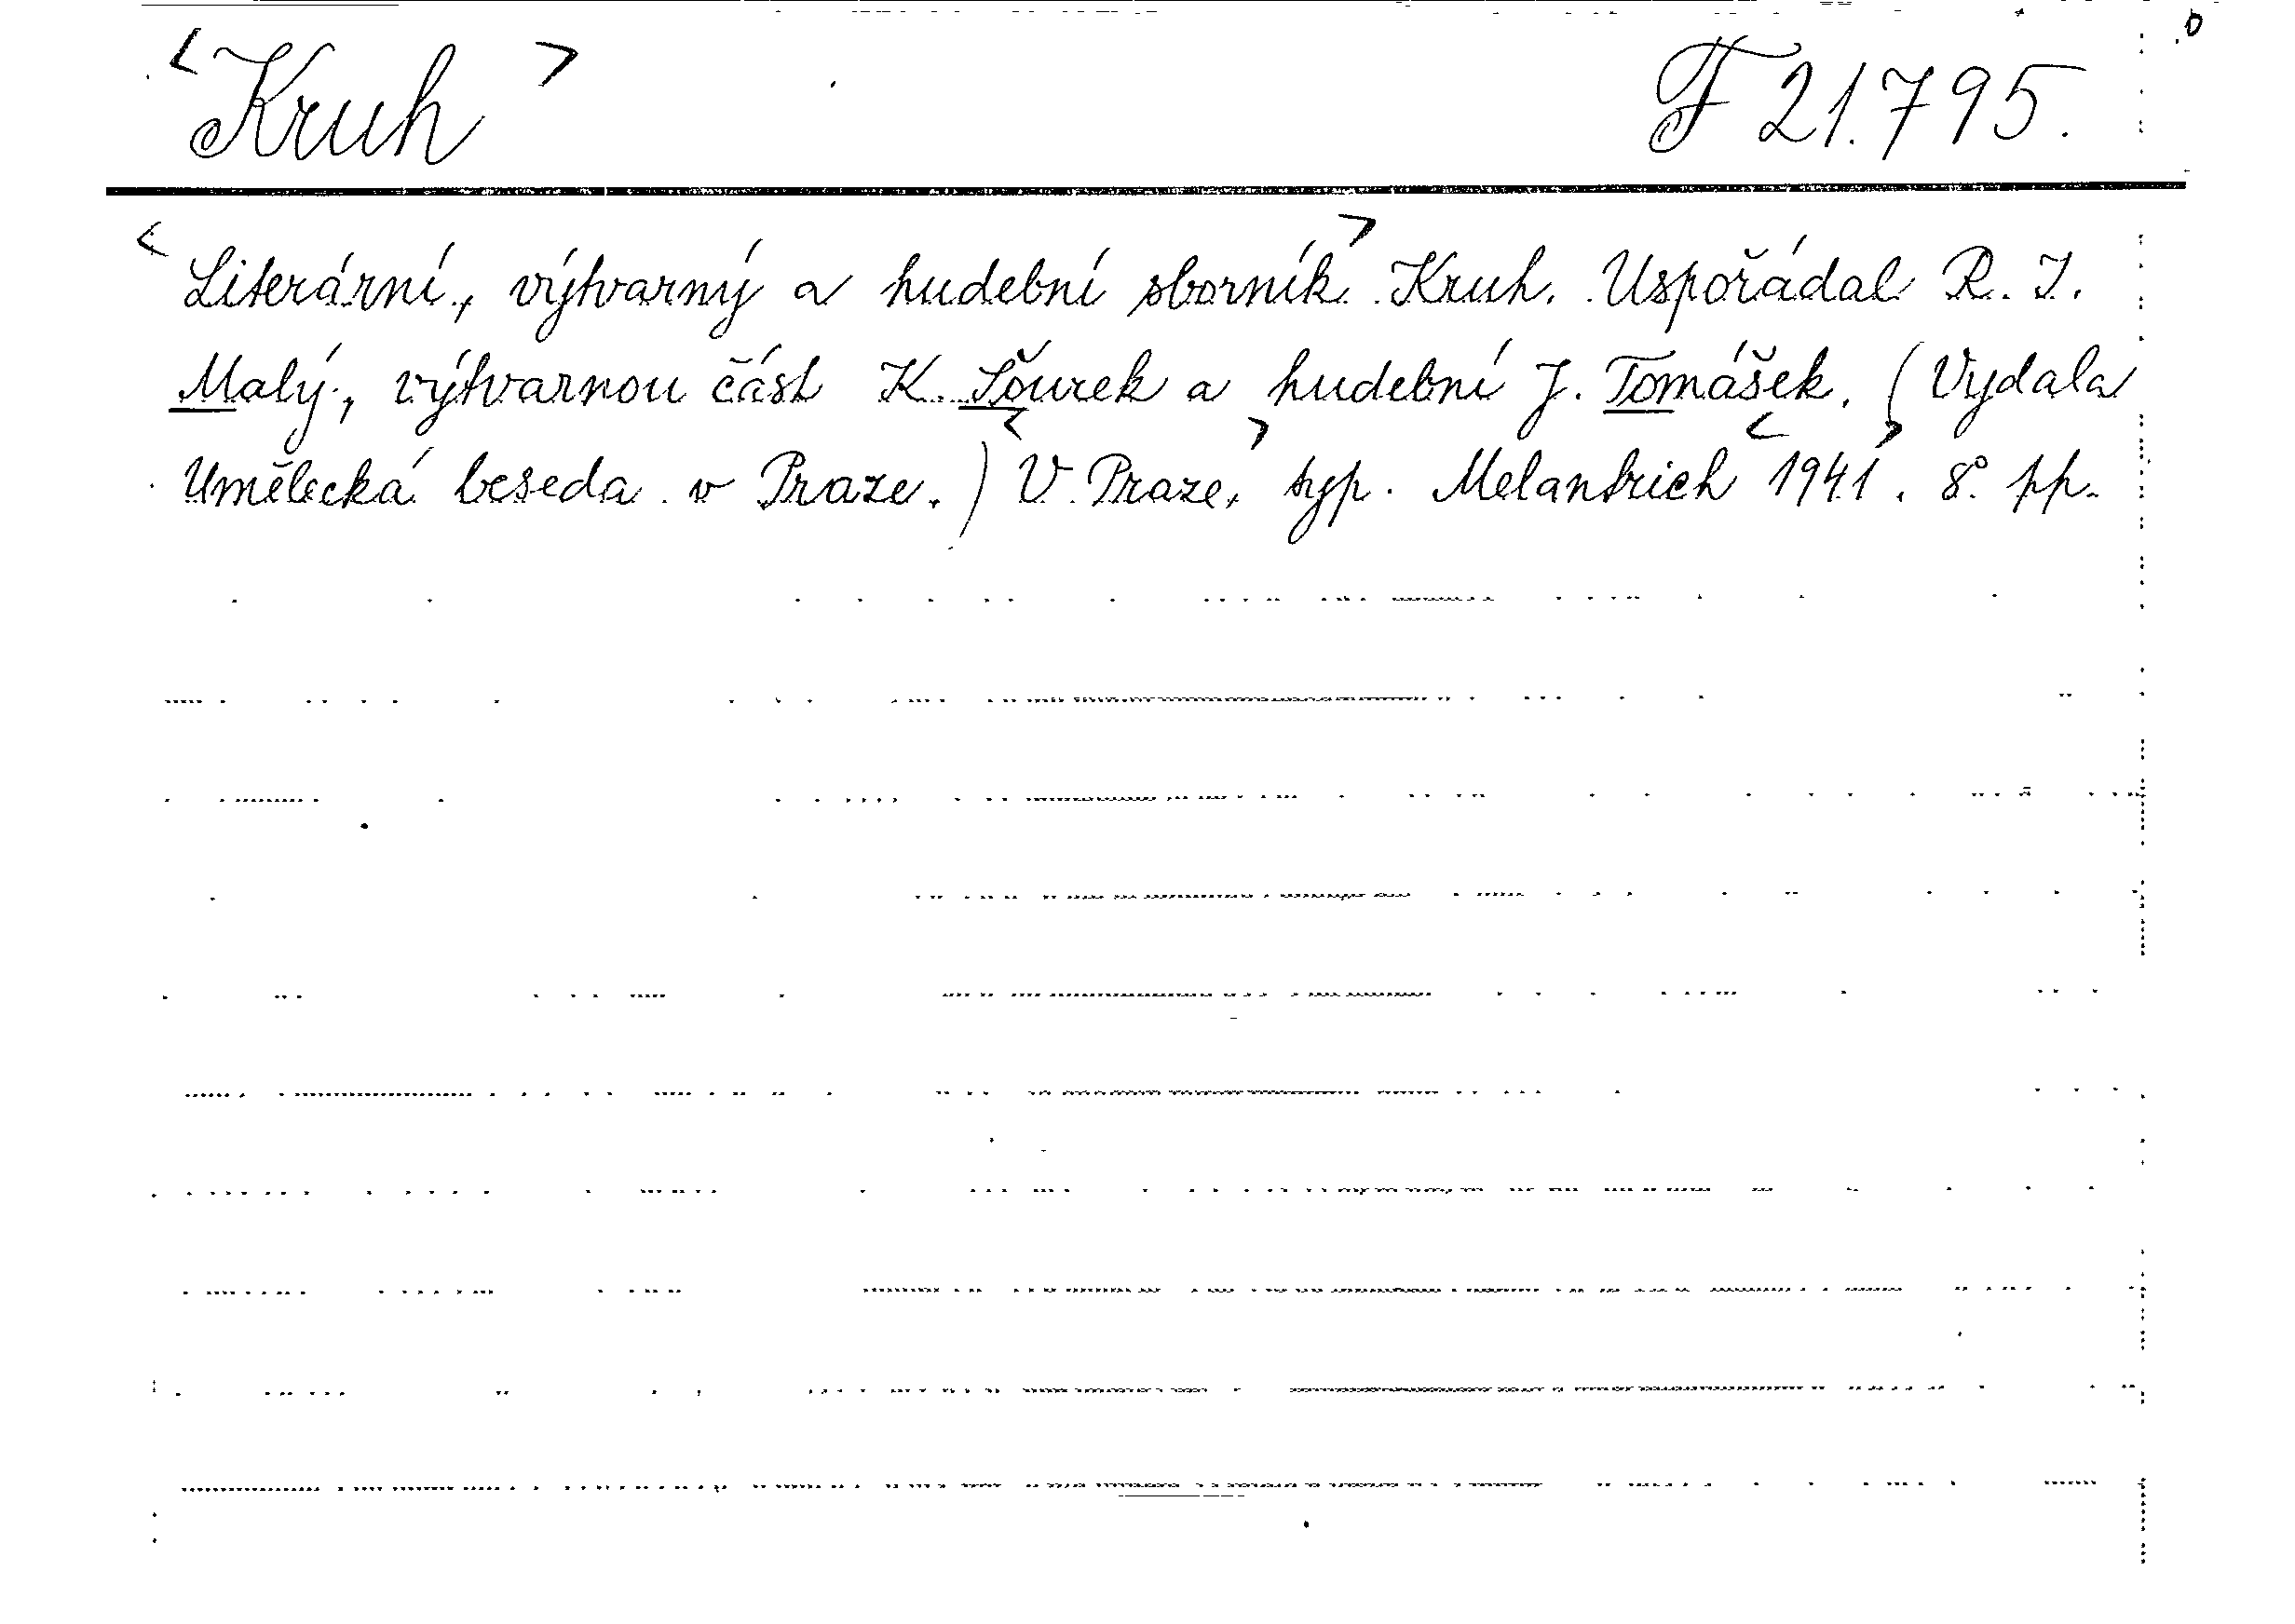 <Kruh> F 21.795.
<Literární, výtvarný a hudební sborník> Kruh. Uspořádal R. I.
Malý, výtvarnou část K. Šourek a hudební J. Tomášek. (Vydala
Umělecká beseda v Praze.) <V Praze,> typ. Melantrich <1941>. 8° pp.